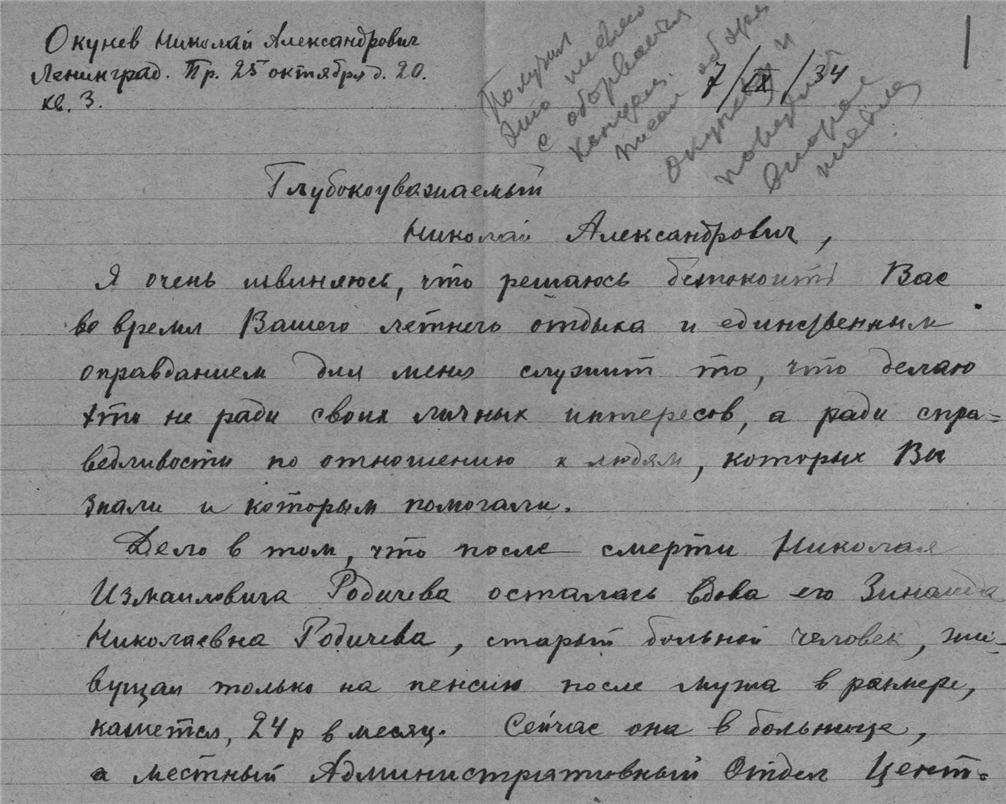 Окунев Николай Александрович
Ленинград. Пр. 25 октября д. 20.
кв. 3.
1
7/IX/34
Получил
это письмо
с оборванным
концом.
писал
Окунев
повторил
второе
письмо
Глубокоуважаемый
Николай Александрович,
Я очень извиняюсь, что решаюсь беспокоить Вас
во время Вашего летнего отдыха и единственным
оправданием для меня служит то, что делаю
это не ради своих личных интересов, а ради спра=
ведливости по отношению к людям, которых Вы
знали и которым помогали.
Дело в том, что после смерти Николая
Измаиловича Родичева осталась вдова его Зинаида
Николаевна Родичева, старый больной человек, жи-
вущая только на пенсию после мужа в размере,
кажется, 24 р в месяц. Сейчас она в больнице,
а местный Административный Отдел Цент-